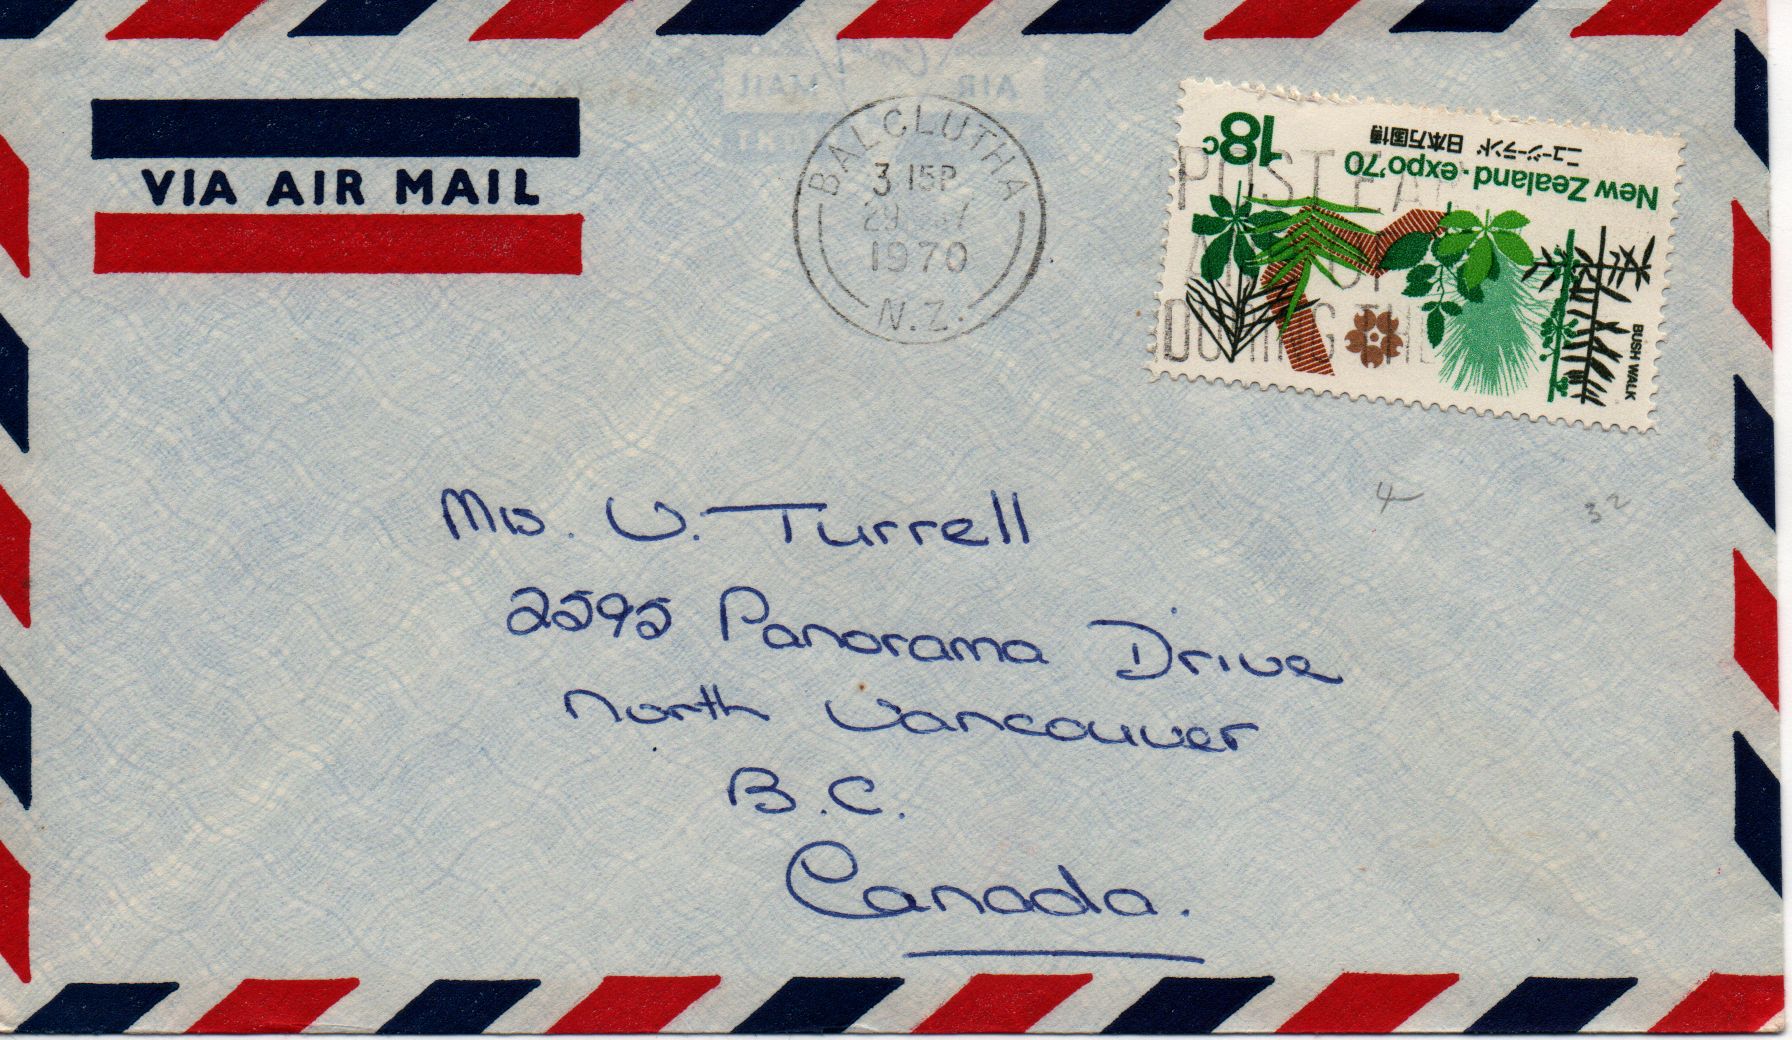 VIA AIR MAIL
BALCLUTHA
3 15P
29
1970
N.Z.
POST EA
DURING THE
18c
New Zealand · expo'70
ニュージーランド 日本万国博
BUSH WALK
AIR MAIL
4
32
Mrs. V. Turrell
2595 Panorama Drive
North Vancouver
B.C.
Canada.